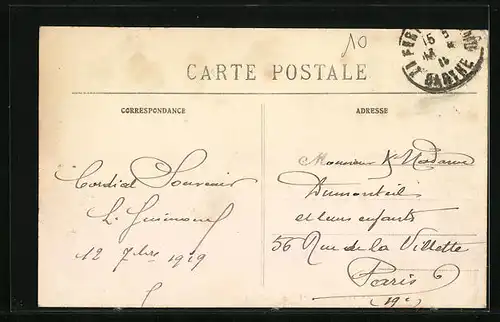 10
CARTE POSTALE
CORRESPONDANCE
ADRESSE
SARTHE
Cordial Souvenir
12 7bre 1919
Monsieur & Madame
Dumonteil
et leurs enfants
56 Rue de la Villette
Paris
(19e)